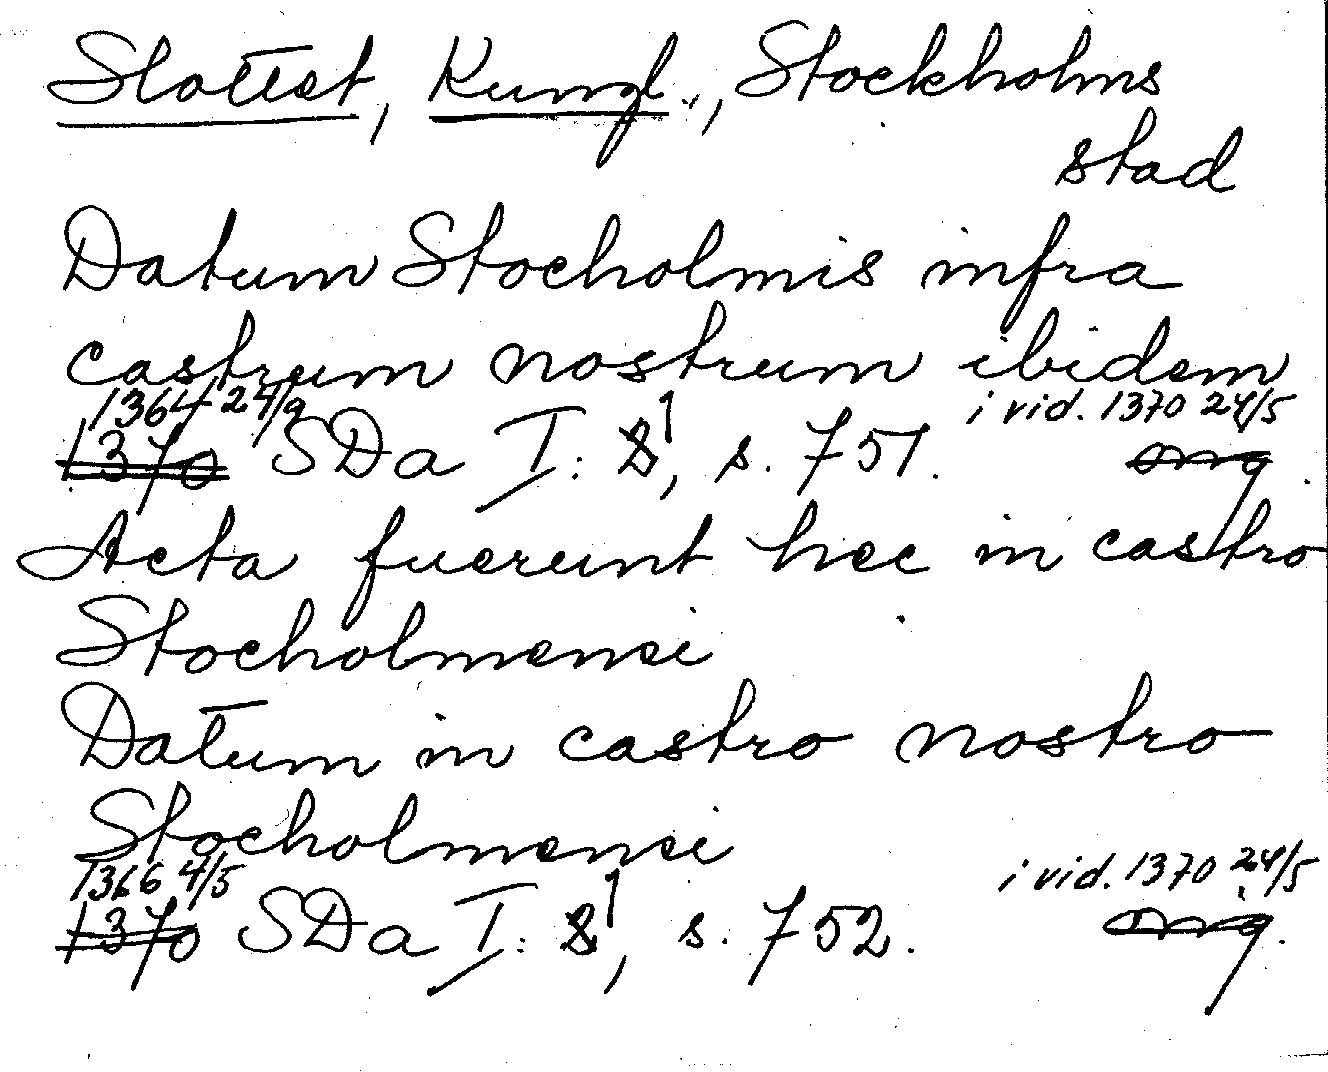 Slottet, Kungl., Stockholms
stad
Datum Stocholmis infra
castrum nostrum ibidem
1364 24/9 i vid. 1370 24/5
1370 SDa I: 8¹, s. 751. org.
Acta fuerunt hec in castro
Stocholmensi
Datum in castro nostro
Stocholmensi
1366 4/5 i vid. 1370 24/5
1370 SDa I: 8¹, s. 752. org.